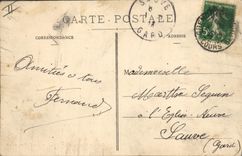 CARTE POSTALE
CORRESPONDANCE
ADRESSE
GARD
Amitiés à tous
Fernand
Mademoiselle
Marthe Seguin
à l'Eglise Neuve
Sauve
(Gard)